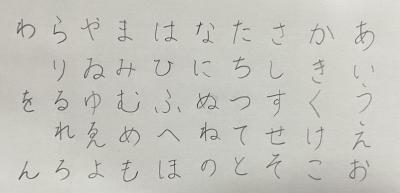 あいうえお
かきくけこ
さしすせそ
たちつてと
なにぬねの
はひふへほ
まみむめも
やゐゆゑよ
らりるれろ
わをん